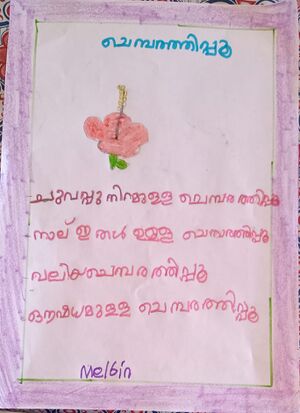 ചെമ്പരത്തിപ്പൂ
ചുവപ്പു നിറമുള്ള ചെമ്പരത്തിപ്പൂ
നാല് ഇതൾ ഉള്ള ചെമ്പരത്തിപ്പൂ
വലിയ ചെമ്പരത്തിപ്പൂ
ഔഷധമുള്ള ചെമ്പരത്തിപ്പൂ
Melbin